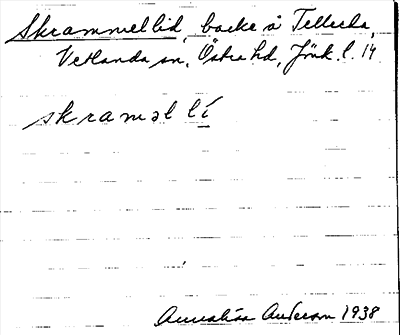 Skrammellid, backe å Tellerda,
Vetlanda sn, Östra hd, Jönk. l. 14
skraməl lí
Annalisa Anderson 1938